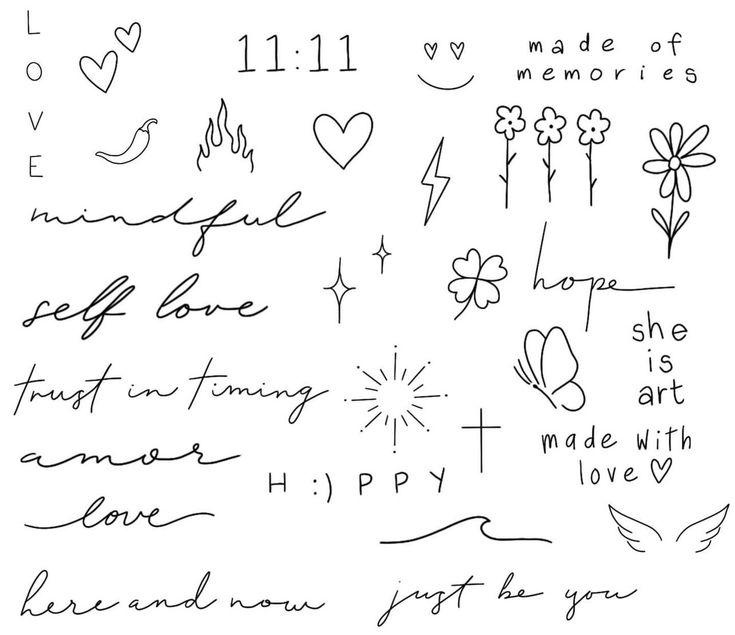 L
O
V
E
11:11
made of
memories
mindful
hope
self love
she
is
art
trust in timing
made with
love
amor
H :) P P Y
love
here and now
just be you